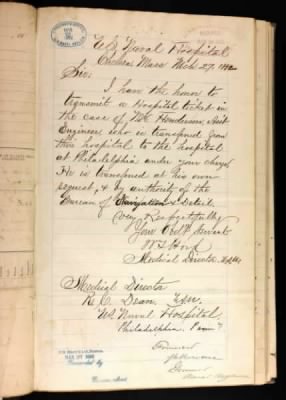 U.S. Naval Hospital,
Chelsea Mass Mch 27, 1882
Sir:
I have the honor to
transmit a Hospital ticket in
the case of Wm Henderson, Asst
Engineer who is transferred from
this hospital to the hospital
at Philadelphia under your charge
He is transferred at his own
request, & by authority of the
Bureau of Navigation & Detail.
Very Respectfully
Your Obdt Servant
Medical Director
Medical Director
R. C. Dean, U.S.N.
U.S. Naval Hospital,
Philadelphia, Penn